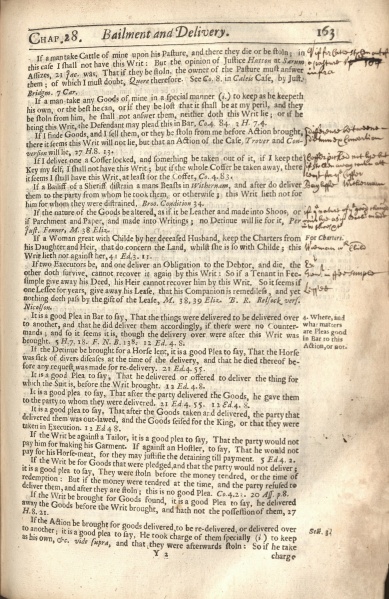 CHAP. 28. Bailment and Delivery. 163
If a man take Cattle of mine upon his Pasture, and there they die or be stoln; in
this case I shall not have this Writ: But the opinion of Justice Hutton at Sarum
Assizes, 21 Jac. was, That if they be stoln, the owner of the Pasture must answer
them; of which I must doubt, Quære therefore. See Co. 8. in Caleis Case, by Just.
Bridgm. 7 Car.
If a man take any Goods of mine in a special manner (i) to keep as he keepeth
his own, or the best he can, or if they be lost that it shall be at my peril, and they
be stoln from him, he shall not answer them, neither doth this Writ lie; or if he
bring this Writ, the Defendant may plead this in Bar, Co. 4. 84. 3 H. 7. 4.
If I finde Goods, and I sell them, or they be stoln from me before Action brought,
there it seems this Writ will not lie, but that an Action of the Case, Trover and Con-
version will lie, 27 H. 8. 13.
If I deliver one a Coffer locked, and something be taken out of it, if I keep the
Key my self, I shall not have this Writ; but if the whole Coffer be taken away, there
it seems I shall have this Writ, at lest for the Coffer, Co. 4. 83.
If a Bailiff of a Seriff distrain a mans Beasts in Withernam, and after do deliver
them to the party from whom he took them, or otherwise; this Writ lieth not for
him for whom they were distrained. Bro. Condition 34.
If the nature of the Goods be altered, as if it be Leather and made into Shoos, or
if Parchment and Paper, and made into Writings; no Detinue will lie for it, Per
Just. Fenner, M. 38 Eliz.
If a Woman great with Childe by her deceased Husband, keep the Charters from
his Daughter and Heir, that do concern the Land, whilst she is so with Childe; this
Writ lieth not against her, 41 Ed. 3. 11.
For Charters,
If two Executors be, and one deliver an Obligation to the Debtor, and die, the
other doth survive, cannot recover it again by this Writ: So if a Tenant in Fee-
simple give away his Deed, his Heir cannot recover him by this Writ. So it seems if
one Lessee for years, give away his Lease, that his Companion is remediless, and yet
nothing doth pass by the gift of the Lease, M. 38, 39 Eliz. B. R. vers.
It is a good Plea in Bar to say, That the things were delivered to be delivered over
to another, and that he did deliver them accordingly, if there were no Counter-
mands; and so it seems it is, though the delivery over were after this Writ was
brought. 5 H. 7. 18. F. N. B. 138. 12 Ed. 4. 8.
4. Where, and
what matters
are Pleas good
in Bar to this
Action, or not.
If the Detinue be brought for a Horse lent, it is a good Plea to say, That the Horse
was sick of divers diseases at the time of the delivery, and that he died thereof be-
fore any request was made for re-delivery. 21 Ed. 4. 55.
It is a good Plea to say, That he delivered or offered to deliver the thing for
which the Suit is, before the Writ brought. 12 Ed. 4. 8.
It is a good Plea to say, That after the party delivered the Goods, he gave them
to the party to whom they were delivered. 21 Ed. 4. 55. 12 Ed. 4. 8.
It is a good Plea to say, That after the Goods taken and delivered, the party that
delivered them was out-lawed, and the Goods seised for the King, or that they were
taken in Execution. 12 Ed. 4. 8.
If the Writ be against a Tailor, it is a good Plea to say, That the party would not
pay him for making his Garment. If against an Hostler, to say, That he would not
pay for his Horse-meat, for they may justifie the detaining till payment. 5 Ed. 4. 2.
If the Writ be for Goods that were pledged, and that the party would not deliver;
it is a good Plea to say, They were stoln before the money tendred, or the time of
redemption: But if the money were tendred at the time, and the party refused to
deliver them, and after they are stoln; this is no good Plea. Co. 4. 21. 20 Ass. p. 8.
If the Writ be brought for Goods found, it is a good Plea to say, he delivered
away the Goods before the Writ brought, and hath not the possession of them, 27
H. 8. 21.
If the Action be brought for goods delivered, to be re-delivered, or delivered over
to another; it is a good plea to say, He took charge of them specially (i) to keep
as his own, &c. vide supra, and that they were afterwards stoln: So if he take
Y 2 charge